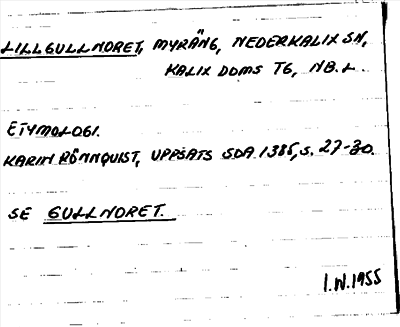 LILLGULLNORET, MYRÄNG, NEDERKALIX SN,
KALIX DOMS TG, NB. L.
ETYMOLOGI.
KARIN RÖNNQUIST, UPPSATS SDA 1385, S. 27-30.
SE GULLNORET.
I.N.1955